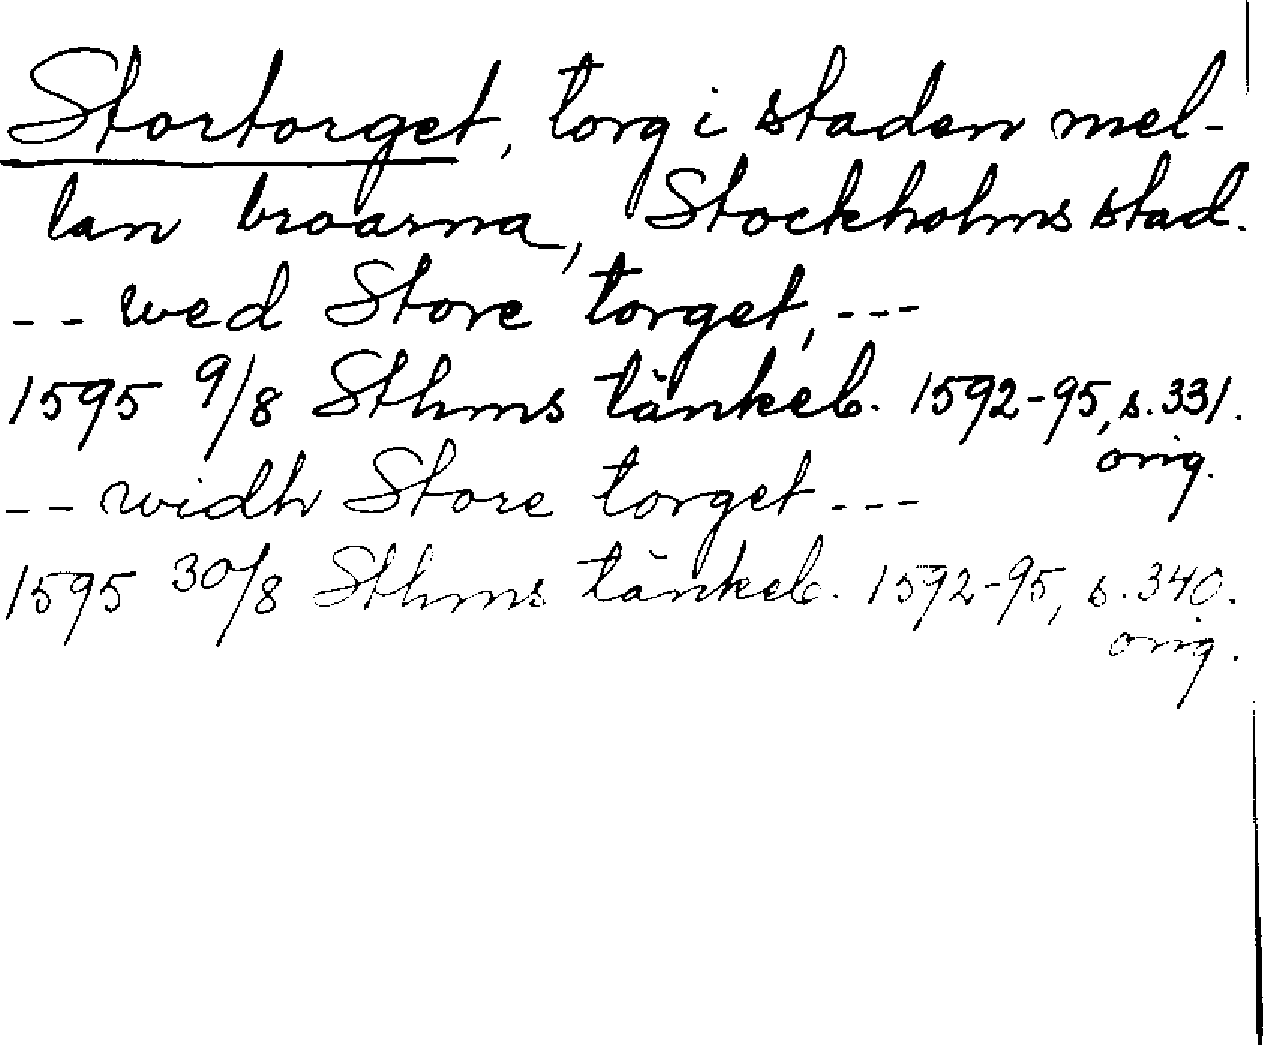 Stortorget, torg i staden mel-
lan broarna, Stockholms stad.
-- wed Store torget, ---
1595 9/8 Sthms tänkeb. 1592-95, s. 331.
orig.
-- widh Store torget ---
1595 30/8 Sthms tänkeb. 1592-95, s. 340.
orig.